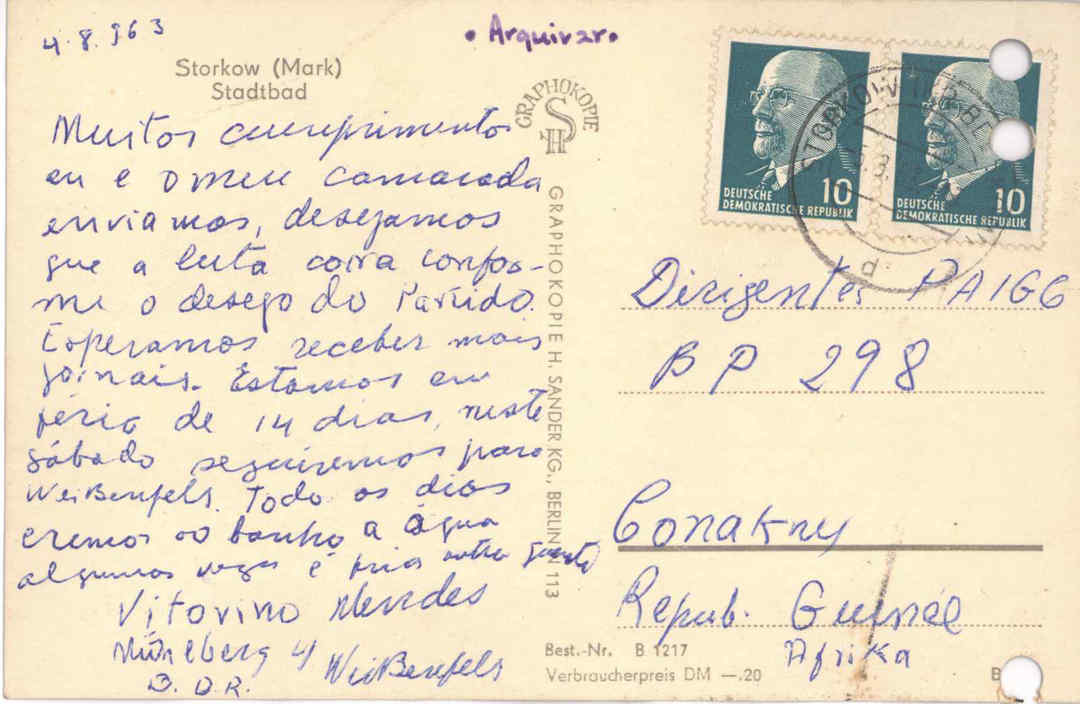 4.8.963
• Arquivar •
Storkow (Mark)
Stadtbad
Muitos cumprimentos
eu e o meu camarada
enviamos, desejamos
que a luta corra confor-
me o desego do Partido.
Esperamos receber mais
jornais. Estamos em
féria de 14 dias, neste
sábado seguiremos para
Weißenfels. Todo os dias
eremos ao banho a água
algumas vezes é fria outra quente
Vitorino Mendes
4 Weißenfels
D.D.R.
GRAPHOKOPIE
SH
GRAPHOKOPIE H. SANDER KG., BERLIN N 113
DEUTSCHE
DEMOKRATISCHE REPUBLIK
10
DEUTSCHE
DEMOKRATISCHE REPUBLIK
10
STORKOW
d
Dirigentes PAIGC
BP 298
Conakry
Repub. Guinée
Afrika
Best.-Nr. B 1217
Verbraucherpreis DM —.20
B